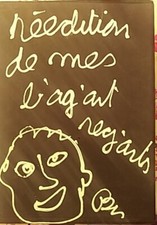 réedition
de mes
l'ag'art
reg'arts